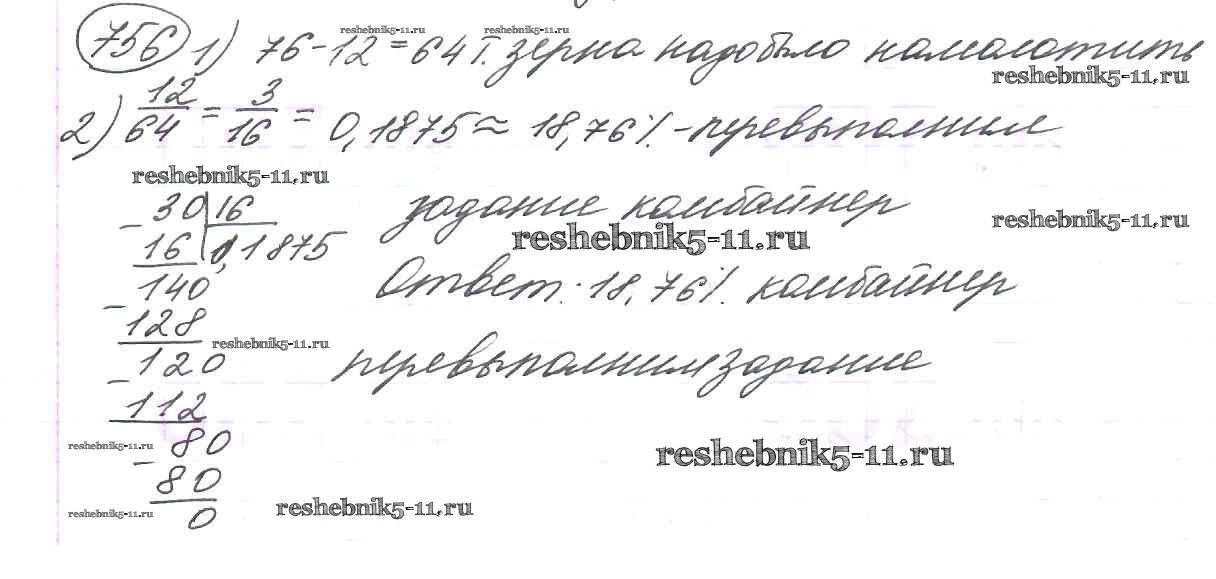 reshebnik5-11.ru reshebnik5-11.ru
756 1) 76-12=64 т. зерна надо было намолотить
reshebnik5-11.ru
2) 12/64 = 3/16 = 0,1875 ≈ 18,76% - перевыполнил
reshebnik5-11.ru
задание комбайнер
reshebnik5-11.ru
reshebnik5-11.ru
Ответ: 18,76% комбайнер
перевыполнил задание
30 16
- 16 0,1875
140
- 128
reshebnik5-11.ru
120
- 112
reshebnik5-11.ru
80
- 80
reshebnik5-11.ru
0
reshebnik5-11.ru
reshebnik5-11.ru